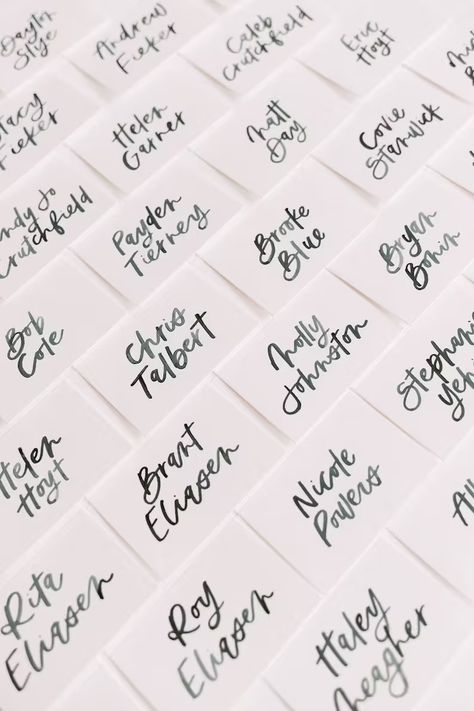 Daylin
Slye
Andrew
Fieker
Caleb
Crutchfield
Eric
Hoyt
Stacy
Fieker
Helen
Garner
Matt
Day
Covie
Stanwick
Crutchfield
Payden
Tierney
Brooke
Blue
Bryan
Bonin
Bob
Cole
Chris
Talbert
Molly
Johnston
Helen
Hoyt
Brant
Eliasen
Nicole
Powers
Rita
Eliasen
Roy
Eliasen
Haley
Meagher